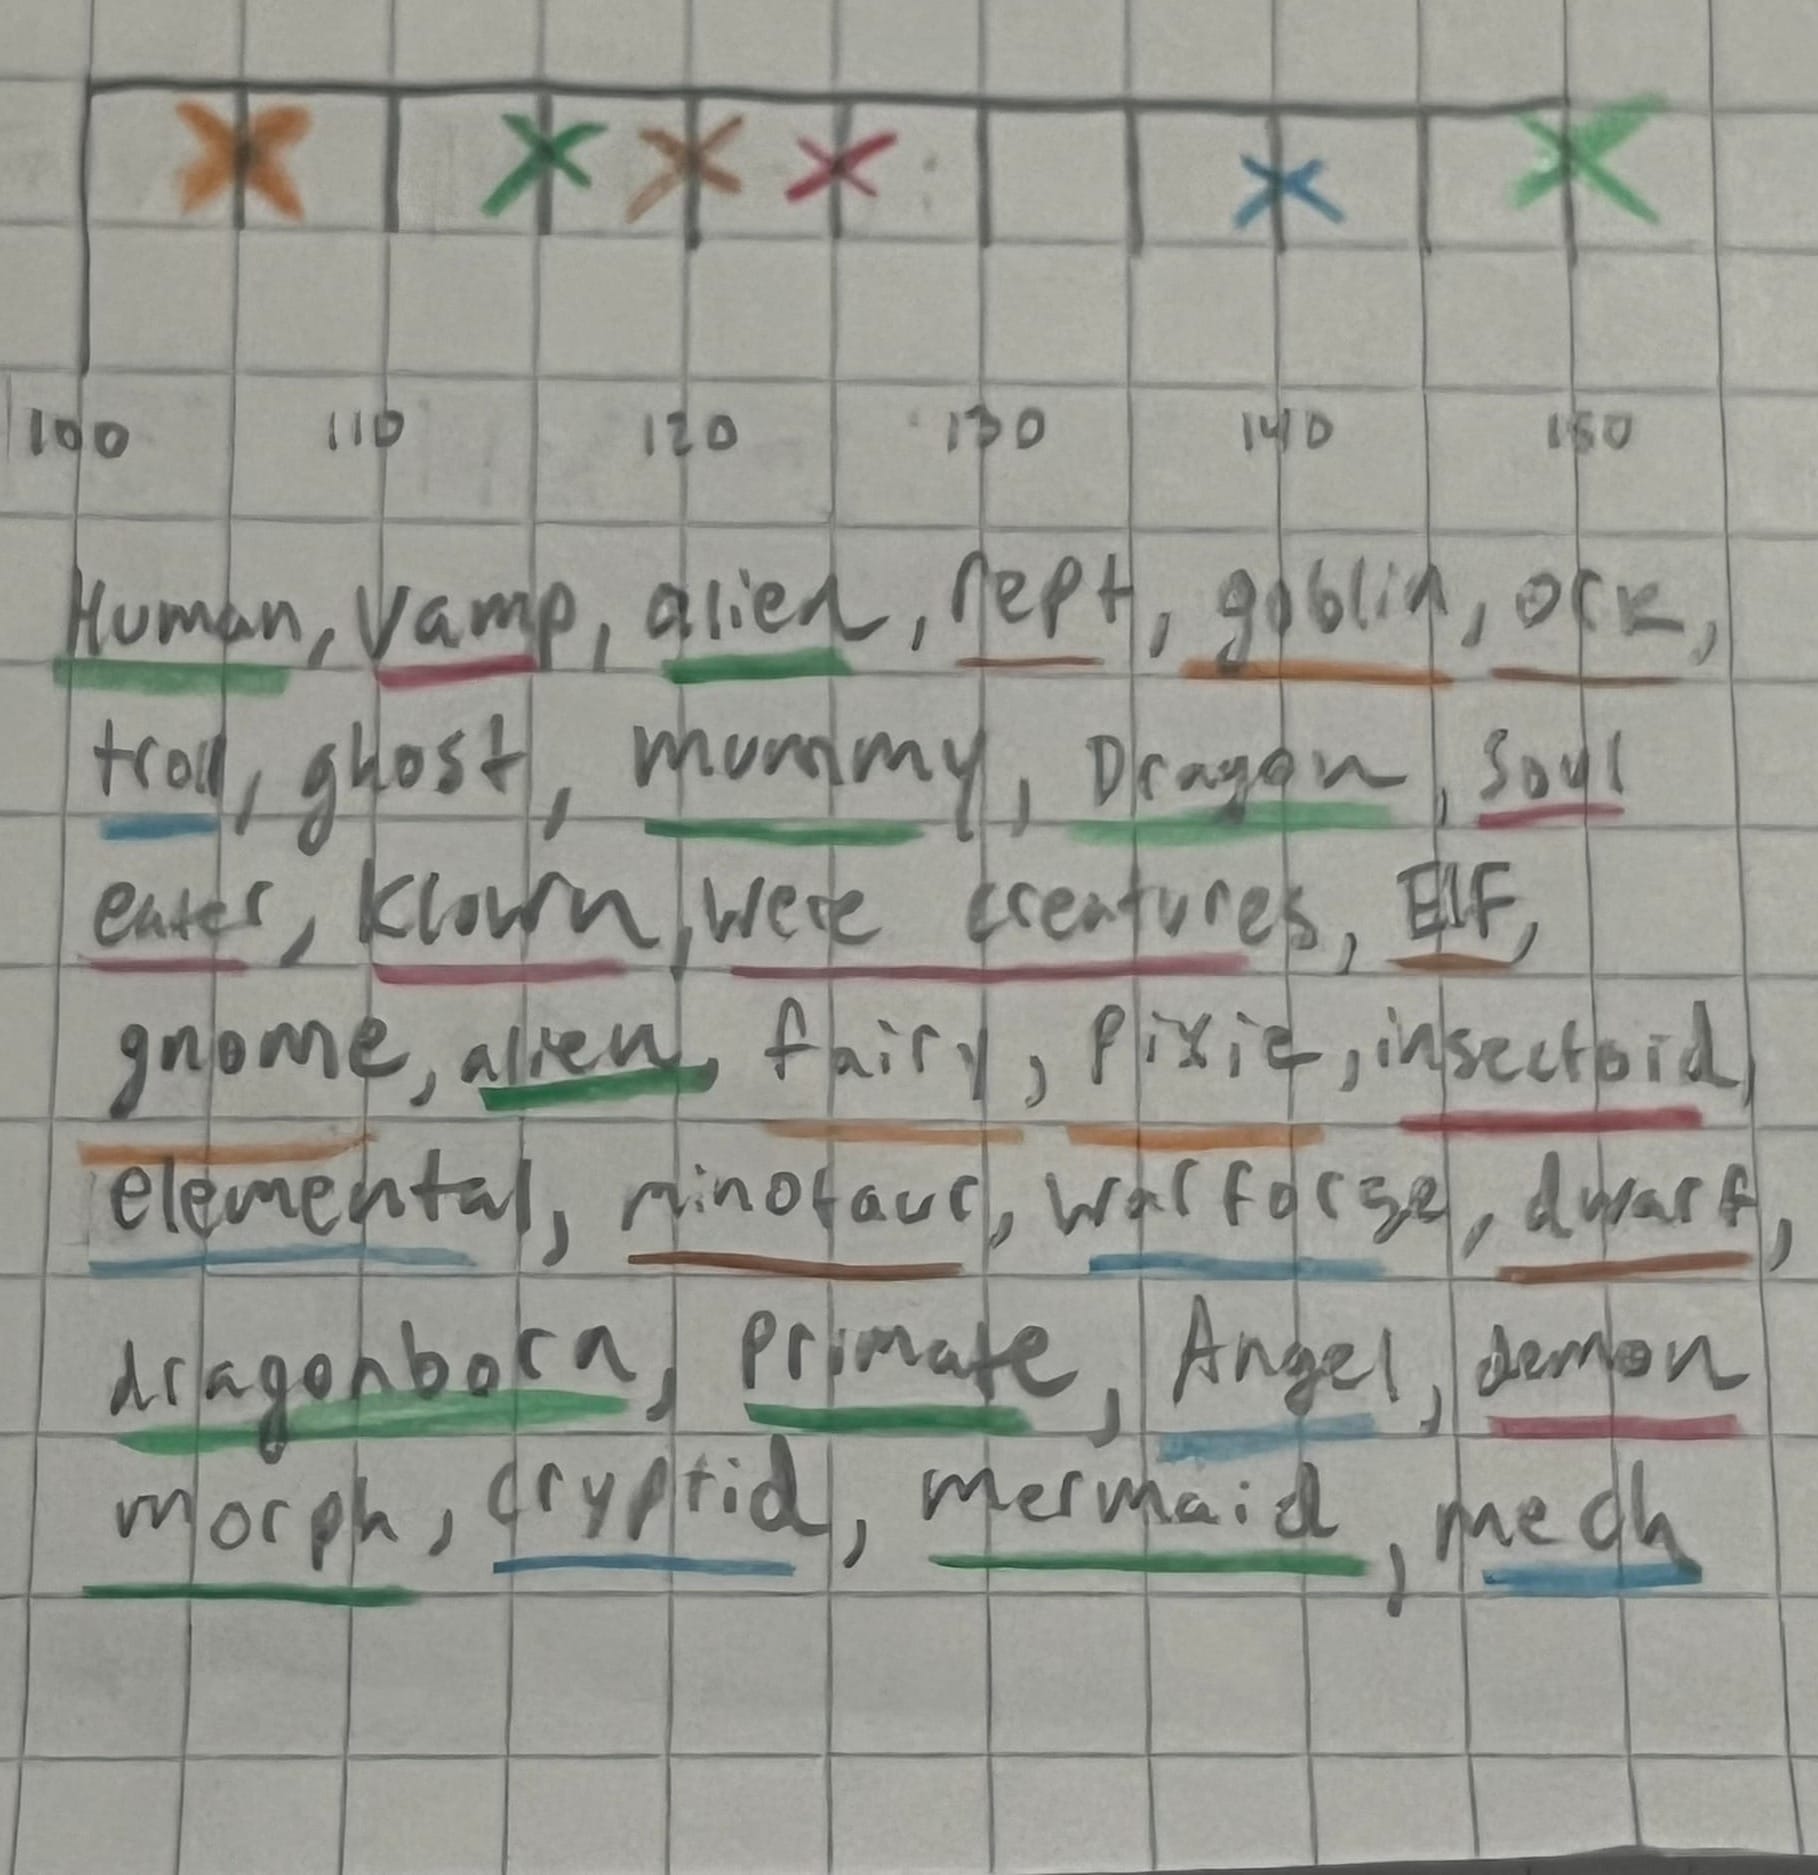 100 110 120 130 140 150
Human, Vamp, alien, rept, goblin, ork,
troll, ghost, mummy, Dragon, Soul
eater, Klown, Were creatures, Elf,
gnome, alien, fairy, Pixie, insectoid,
elemental, minotaur, warforge, dwarf,
dragonborn, Primate, Angel, demon
morph, cryptid, mermaid, mech